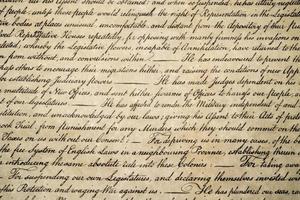 be obtained; and when so suspended, he has utterly neglect
people, unless those people would relinquish the right of Representation in the Legislat
tive bodies at places unusual, uncomfortable, and distant from the depository of their
lved Representative Houses repeatedly, for opposing with manly firmness his invasions on
ected; whereby the Legislative powers, incapable of Annihilation, have returned to th
from without, and convulsions within. — He has endeavoured to prevent t
to encourage their migrations hither, and raising the conditions of new
for establishing Judiciary powers. — He has made Judges dependent on his
multitude of New Offices, and sent hither swarms of Officers to harrass our people,
of our legislatures. — He has affected to render the Military independent of and
stitution, and unacknowledged by our laws; giving his Assent to their Acts of prete
ock Trial, from punishment for any Murders which they should commit on the
Taxes on us without our Consent: — For depriving us in many cases, of the be
the free System of English Laws in a neighbouring Province, establishing therein
introducing the same absolute rule into these Colonies: — For taking awa
For suspending our own Legislatures, and declaring themselves invested wi
his Protection and waging War against us. — He has plundered our seas, ra